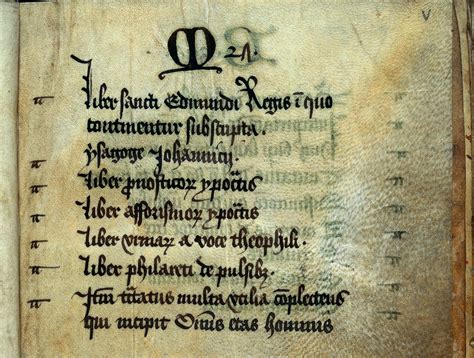 M 21.
liber sancti Edmundi Regis ī quo
continentur subscripta.
ysagoge Johannicij
liber pnosticoꝝ ypoc͞tis
liber afforismoꝝ ypoc͞tis
liber vrinaꝝ a voce theophili.
liber philareti de pulsibꝫ
Itm͞ t͞ctatus multa vtilia ꝯplectens
qui incipit Om͞is etas hominis